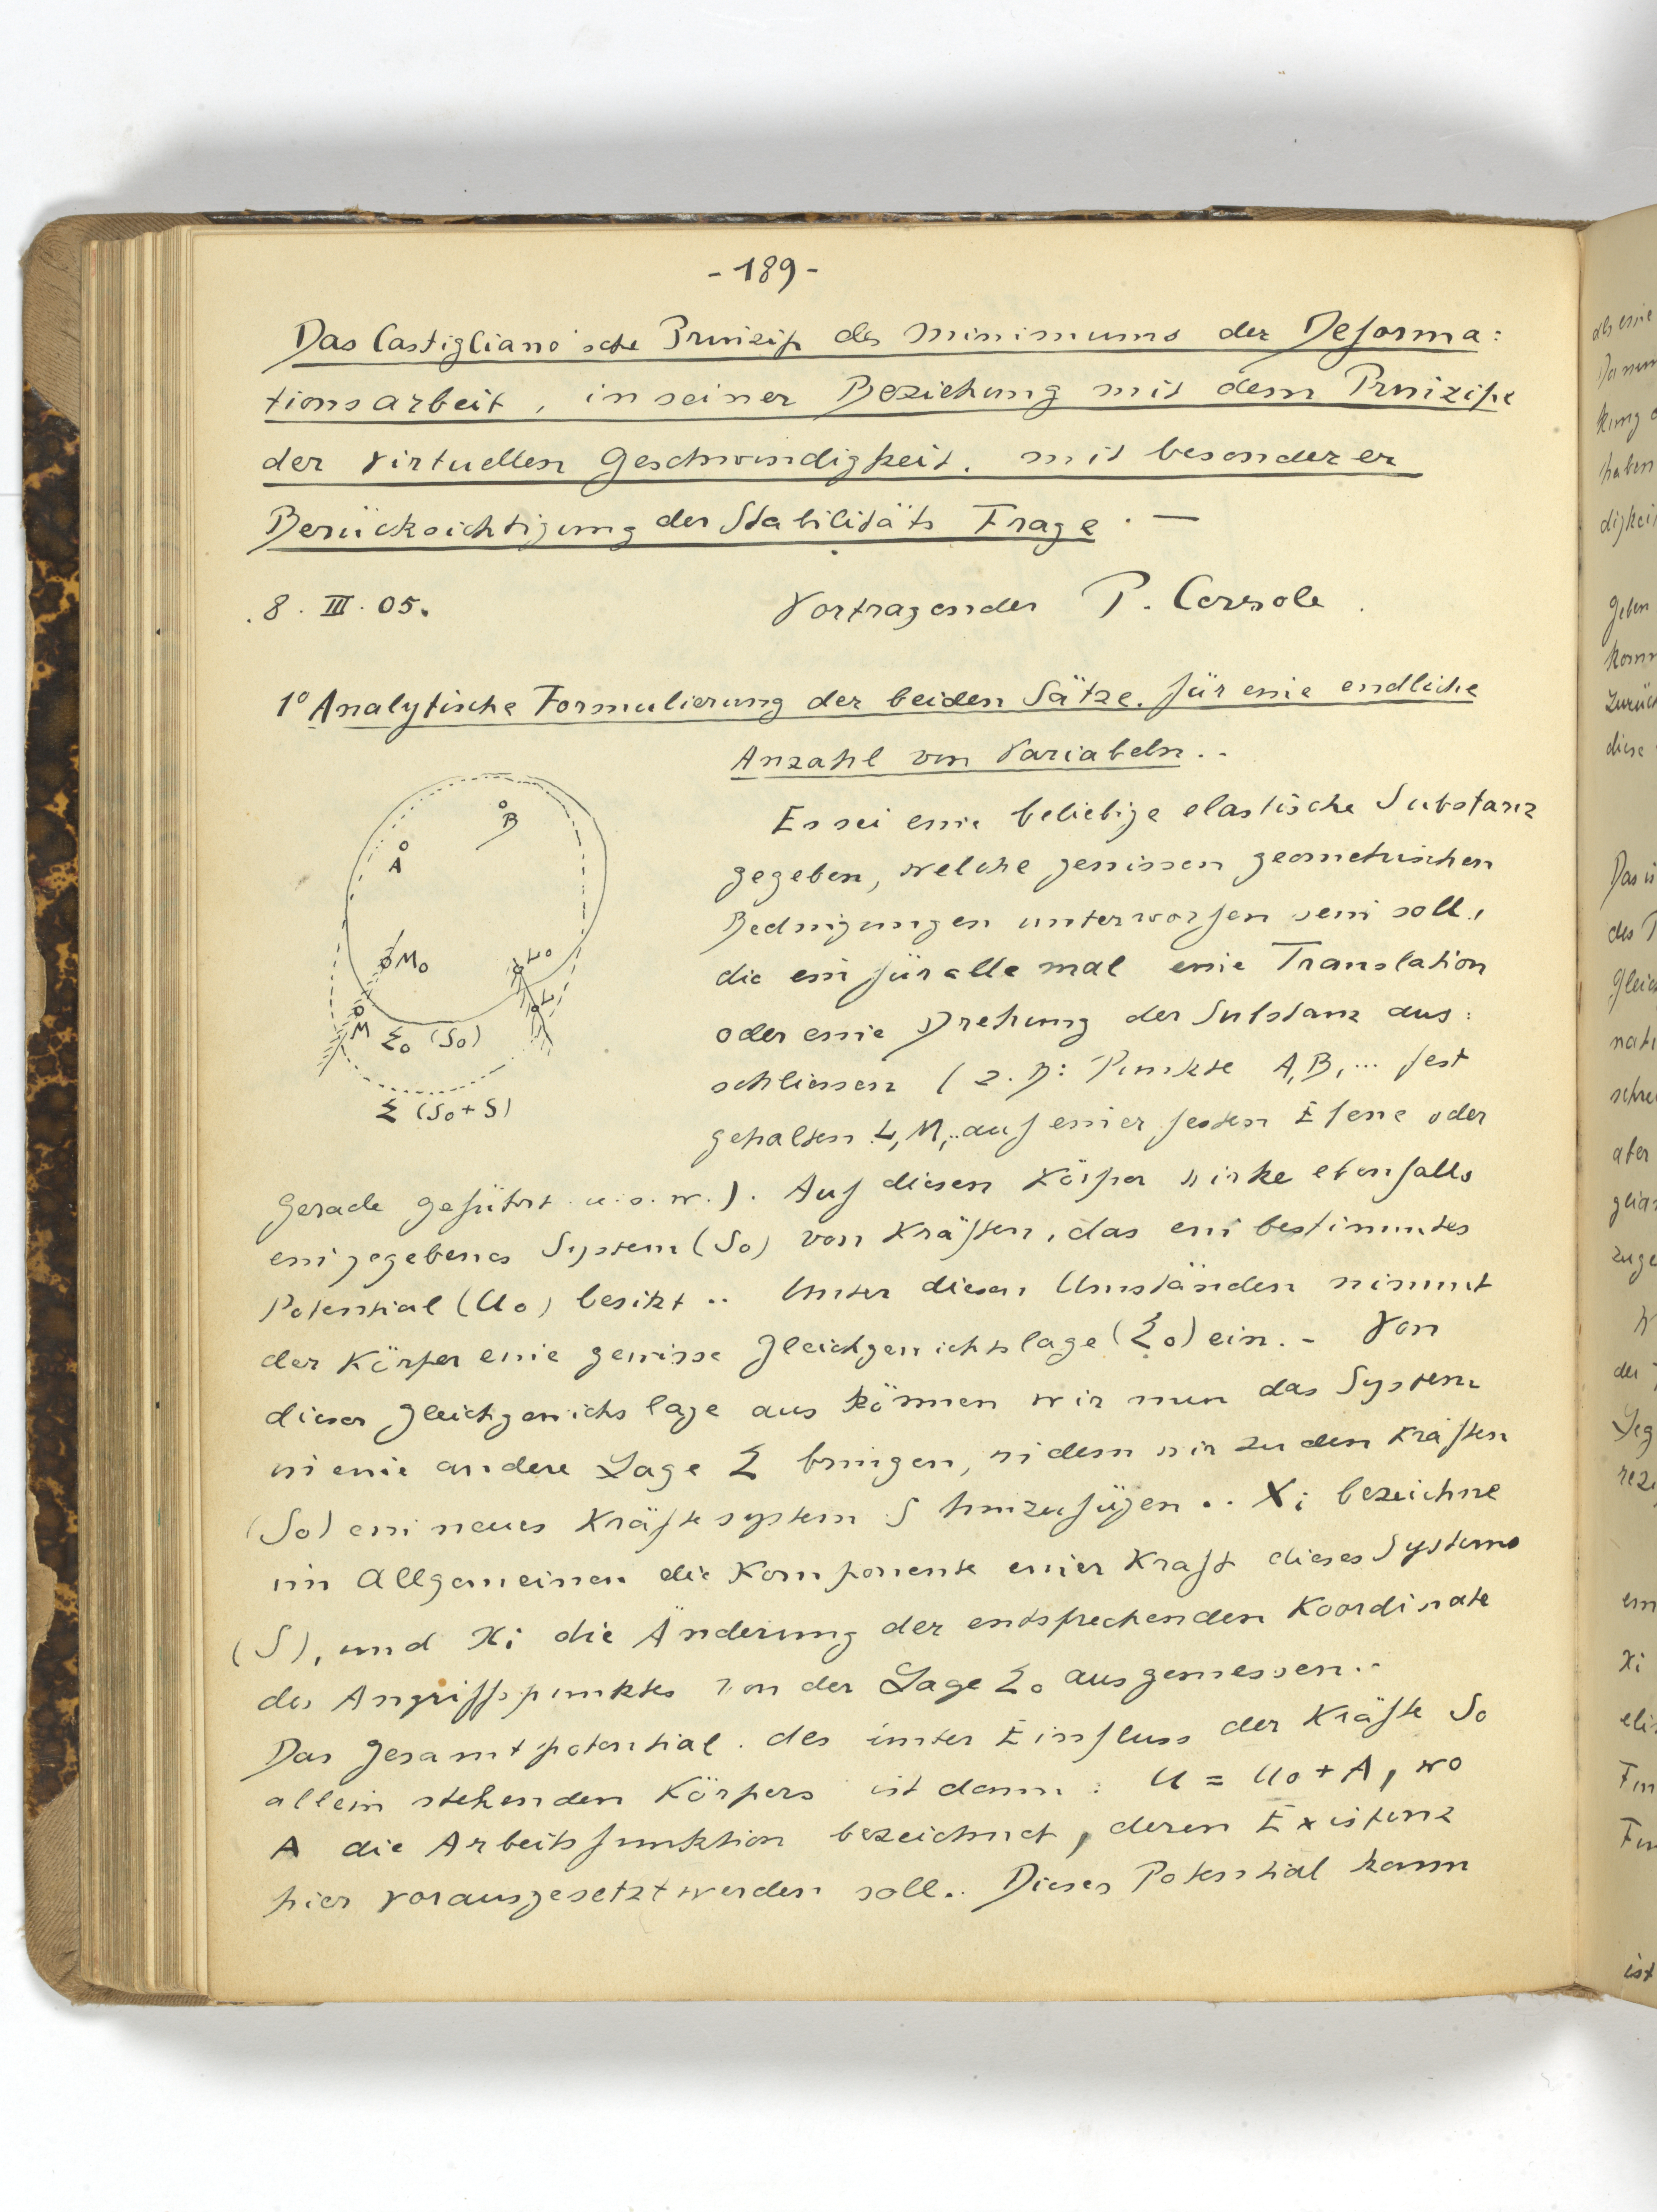 - 189 -
Das Castigliano'sche Prinzip des Minimums der Deforma:
tionsarbeit, in seiner Beziehung mit dem Prinzipe
der virtuellen Geschwindigkeit, mit besonderer
Berücksichtigung der Stabilitäts Frage. —
8. III. 05.
Vortragender P.
1° Analytische Formulierung der beiden Sätze, für eine endliche
Anzahl von Variabeln. -
B
A
M₀
L₀
L
M
Σ₀ (S₀)
Σ (S₀ + S)
Es sei eine beliebige elastische Substanz
gegeben, welche gewissen geometrischen
Bedingungen unterworfen sein soll,
die ein für alle mal eine Translation
oder eine Drehung der Substanz aus:
schliessen (z. B: Punkte A, B, ... fest
gehalten L, M, .. auf einer festen Ebene oder
Gerade geführt u. s. w.). Auf diesen Körper wirke ebenfalls
ein gegebenes System (S₀) von Kräften, das ein bestimmtes
Potential (U₀) besitzt .. Unter diesen Umständen nimmt
der Körper eine gewisse Gleichgewichtslage (Σ₀) ein. - Von
dieser Gleichgewichtslage aus können wir nun das System
in eine andere Lage Σ bringen, indem wir zu den Kräften
(S₀) ein neues Kräftesystem S hinzufügen .. Xi bezeichne
im Allgemeinen die Komponente einer Kraft dieses Systems
(S), und xi die Änderung der entsprechenden Koordinate
des Angriffspunktes von der Lage Σ₀ aus gemessen. -
Das Gesamtpotential des unter Einfluss der Kräfte S₀
allein stehenden Körpers ist dann: U = U₀ + A, wo
A die Arbeitsfunktion bezeichnet, deren Existenz
hier vorausgesetzt werden soll.. Dieses Potential kann